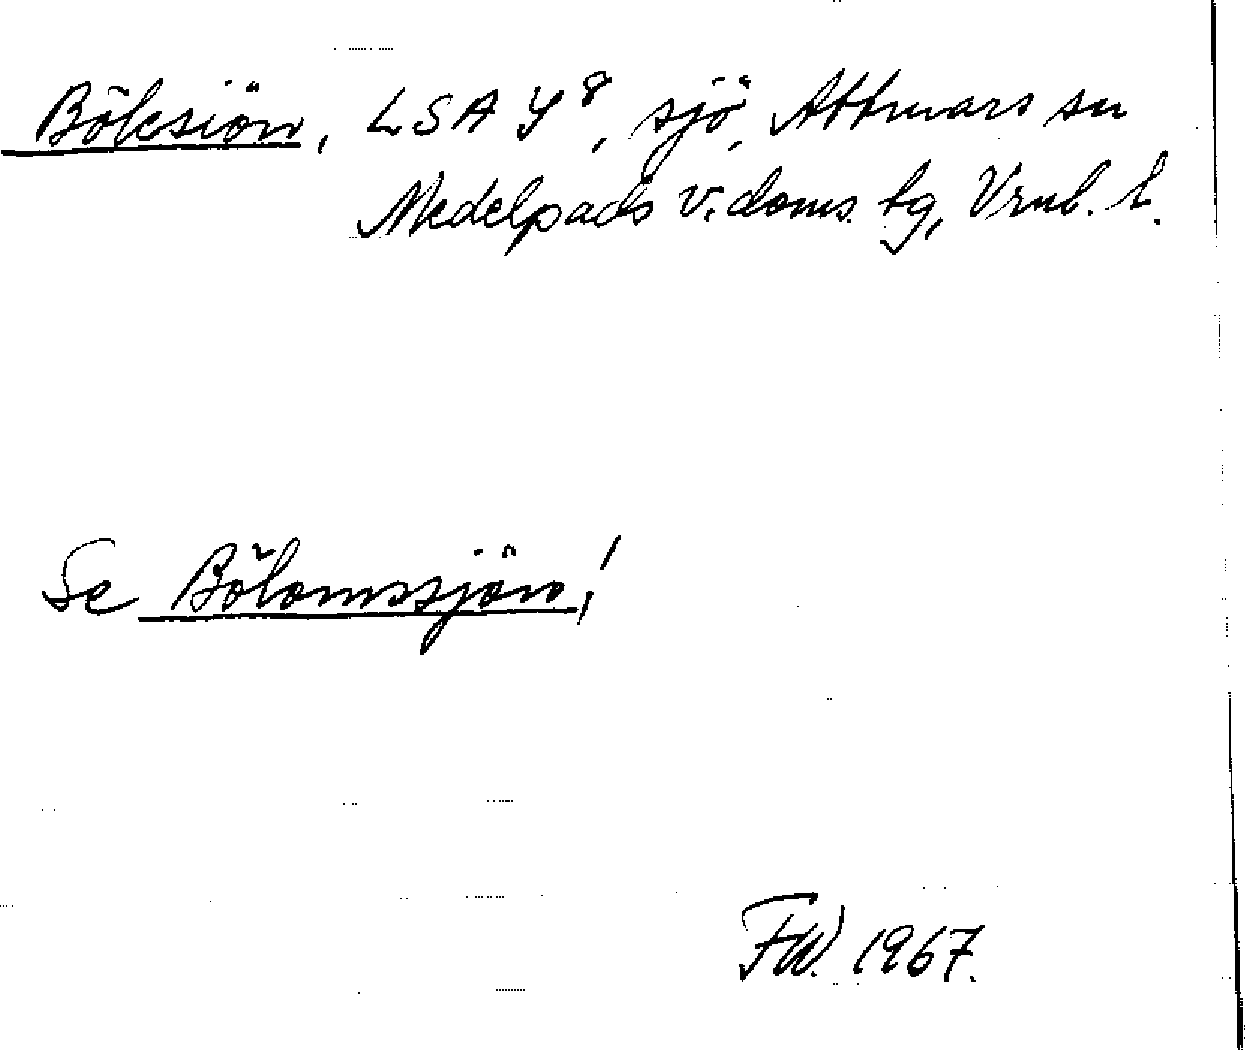 Bölesiön, LSA Y⁸, sjö, Attmars sn
Medelpads v. doms. tg, Vrnl. l.
Se Bölomssjön!
FW. 1967.